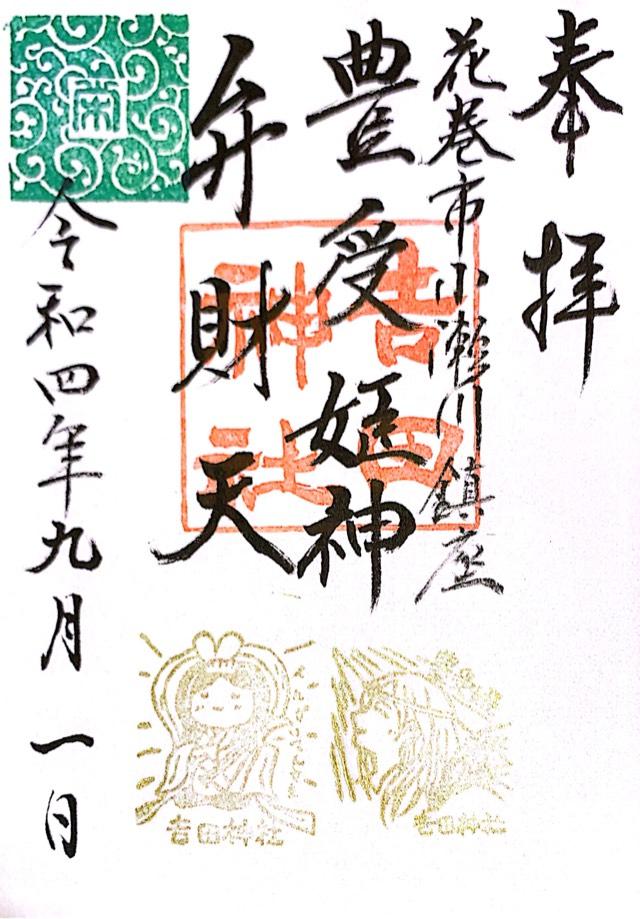 奉拝
花巻市小瀬川鎮座
豊受姫神
弁財天
令和四年九月一日
吉田神社
吉田神社
吉田神社